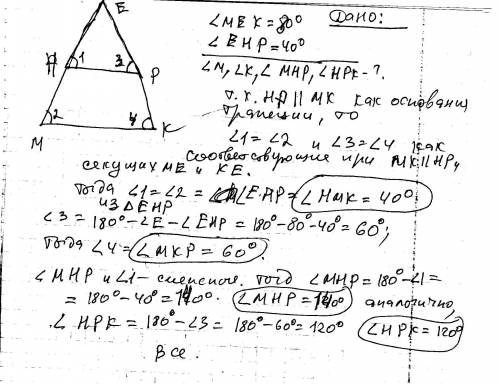 E
H 1 3 P
M 2 4 K
Дано:
∠MEK = 80°
∠EHP = 40°
∠M, ∠K, ∠MHP, ∠HPK - ?
т.к. HP || MK как основания
трапеции, то
∠1 = ∠2 и ∠3 = ∠4 как
соответствующие при MK || HP и
секущих ME и KE.
Тогда ∠1 = ∠2 = ∠EHP = ∠HMK = 40°
из ΔEHP
∠3 = 180° - ∠E - ∠EHP = 180° - 80° - 40° = 60°;
Тогда ∠4 = ∠MKP = 60°.
∠MHP и ∠1 - смежные. Тогд ∠MHP = 180° - ∠1 =
= 180° - 40° = 140°. ∠MHP = 140° аналогично,
∠HPK = 180° - ∠3 = 180° - 60° = 120° ∠HPK = 120°
Все.